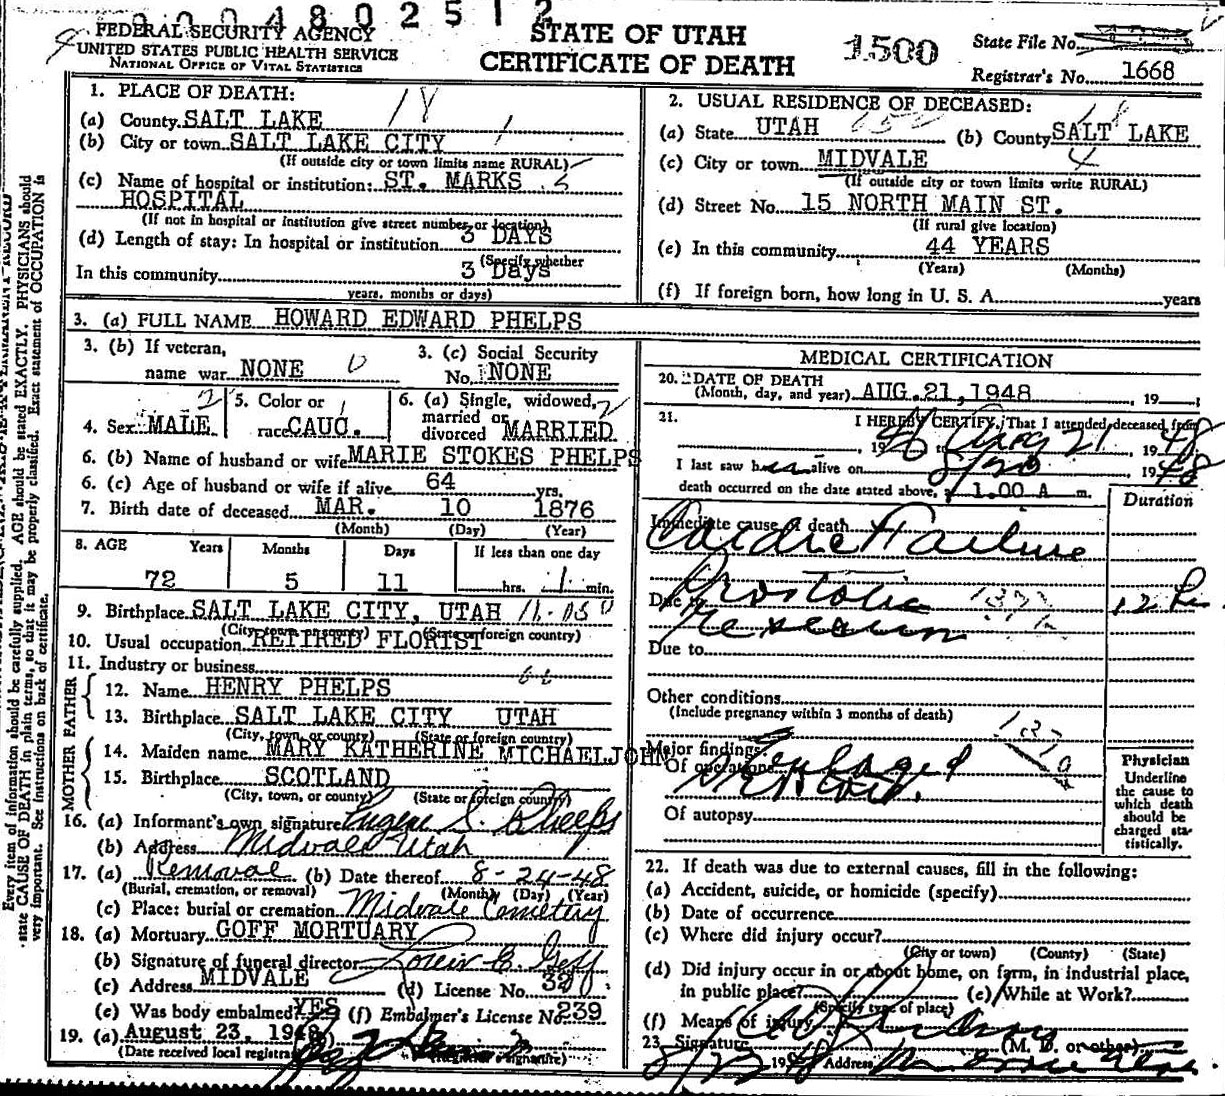 0 0 0 4 8 0 2 5 1 2
FEDERAL SECURITY AGENCY
UNITED STATES PUBLIC HEALTH SERVICE
NATIONAL OFFICE OF VITAL STATISTICS
STATE OF UTAH
CERTIFICATE OF DEATH
1500
State File No.
Registrar's No. 1668
1. PLACE OF DEATH: 18
(a) County SALT LAKE
(b) City or town SALT LAKE CITY 1
(If outside city or town limits name RURAL)
(c) Name of hospital or institution: ST. MARKS 5
HOSPITAL
(If not in hospital or institution give street number or location)
(d) Length of stay: In hospital or institution 3 DAYS
(Specify whether
In this community 3 Days
years, months or days)
2. USUAL RESIDENCE OF DECEASED: 18
(a) State UTAH (b) County SALT LAKE
(c) City or town MIDVALE 4
(If outside city or town limits write RURAL)
(d) Street No. 15 NORTH MAIN ST.
(If rural give location)
(e) In this community 44 YEARS
(Years) (Months)
(f) If foreign born, how long in U. S. A. years
3. (a) FULL NAME HOWARD EDWARD PHELPS
3. (b) If veteran,
name war NONE 0
3. (c) Social Security
No. NONE
4. Sex MALE 2
5. Color or
race CAUC. 1
6. (a) Single, widowed,
married or
divorced MARRIED 2
6. (b) Name of husband or wife MARIE STOKES PHELPS
6. (c) Age of husband or wife if alive 64 yrs.
7. Birth date of deceased MAR. 10 1876
(Month) (Day) (Year)
8. AGE Years Months Days If less than one day
72 5 11 hrs. min.
9. Birthplace SALT LAKE CITY, UTAH
(City, town, or county) (State or foreign country)
10. Usual occupation RETIRED FLORIST
11. Industry or business
FATHER
12. Name HENRY PHELPS
13. Birthplace SALT LAKE CITY UTAH
(City, town, or county) (State or foreign country)
MOTHER
14. Maiden name MARY KATHERINE MICHAELJOHN
15. Birthplace SCOTLAND
(City, town, or county) (State or foreign country)
16. (a) Informant's own signature Eugene S. Phelps
(b) Address Midvale Utah
17. (a) Removal (b) Date thereof 8-24-48
(Burial, cremation, or removal) (Month) (Day) (Year)
(c) Place: burial or cremation Midvale Cemetery
18. (a) Mortuary GOFF MORTUARY
(b) Signature of funeral director Louis C. Goff
(c) Address MIDVALE (d) License No.
(e) Was body embalmed? YES (f) Embalmer's License No. 239
19. (a) August 23, 1948
(Date received local registrar) (Registrar's signature)
MEDICAL CERTIFICATION
20. DATE OF DEATH
(Month, day, and year) AUG. 21, 1948 , 19
21. I HEREBY CERTIFY, That I attended deceased from
, 1946 Aug 21 1948
I last saw him alive on 8/20 1948
death occurred on the date stated above, 1.00 A m.
Duration
Immediate cause of death
Cardiac Failure
Due to Prostatic 12 hr.
Resection
Due to
Other conditions
(Include pregnancy within 3 months of death)
Major findings:
Of operations Enlarged
Of autopsy
Physician
Underline
the cause to
which death
should be
charged sta-
tistically.
22. If death was due to external causes, fill in the following:
(a) Accident, suicide, or homicide (specify)
(b) Date of occurrence
(c) Where did injury occur?
(City or town) (County) (State)
(d) Did injury occur in or about home, on farm, in industrial place,
in public place? (e) While at Work?
(Specify type of place)
(f) Means of injury
23. Signature (M. D. or other)
8/23 1948 Address
Every item of information should be carefully supplied. AGE should be stated EXACTLY. PHYSICIANS should
state CAUSE OF DEATH in plain terms, so that it may be properly classified. Exact statement of OCCUPATION is
very important. See instructions on back of certificate.